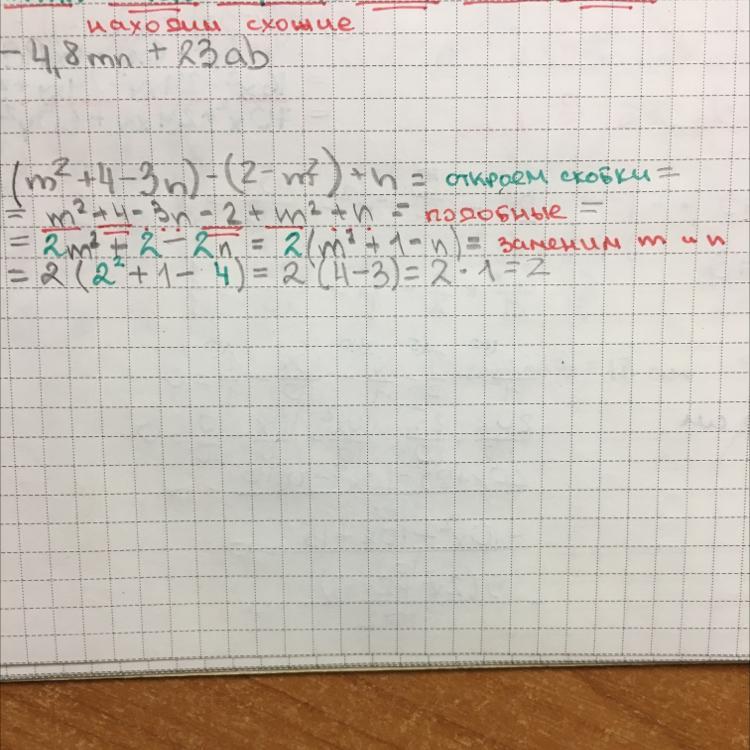 находим схожие
-4,8mn + 23ab
(m²+4-3n)-(2-m²)+n = откроем скобки =
= m²+4-3n-2+m²+n = подобные =
= 2m²+2-2n = 2(m²+1-n)= заменим m и n
= 2(2²+1-4)= 2(4-3)= 2·1=2